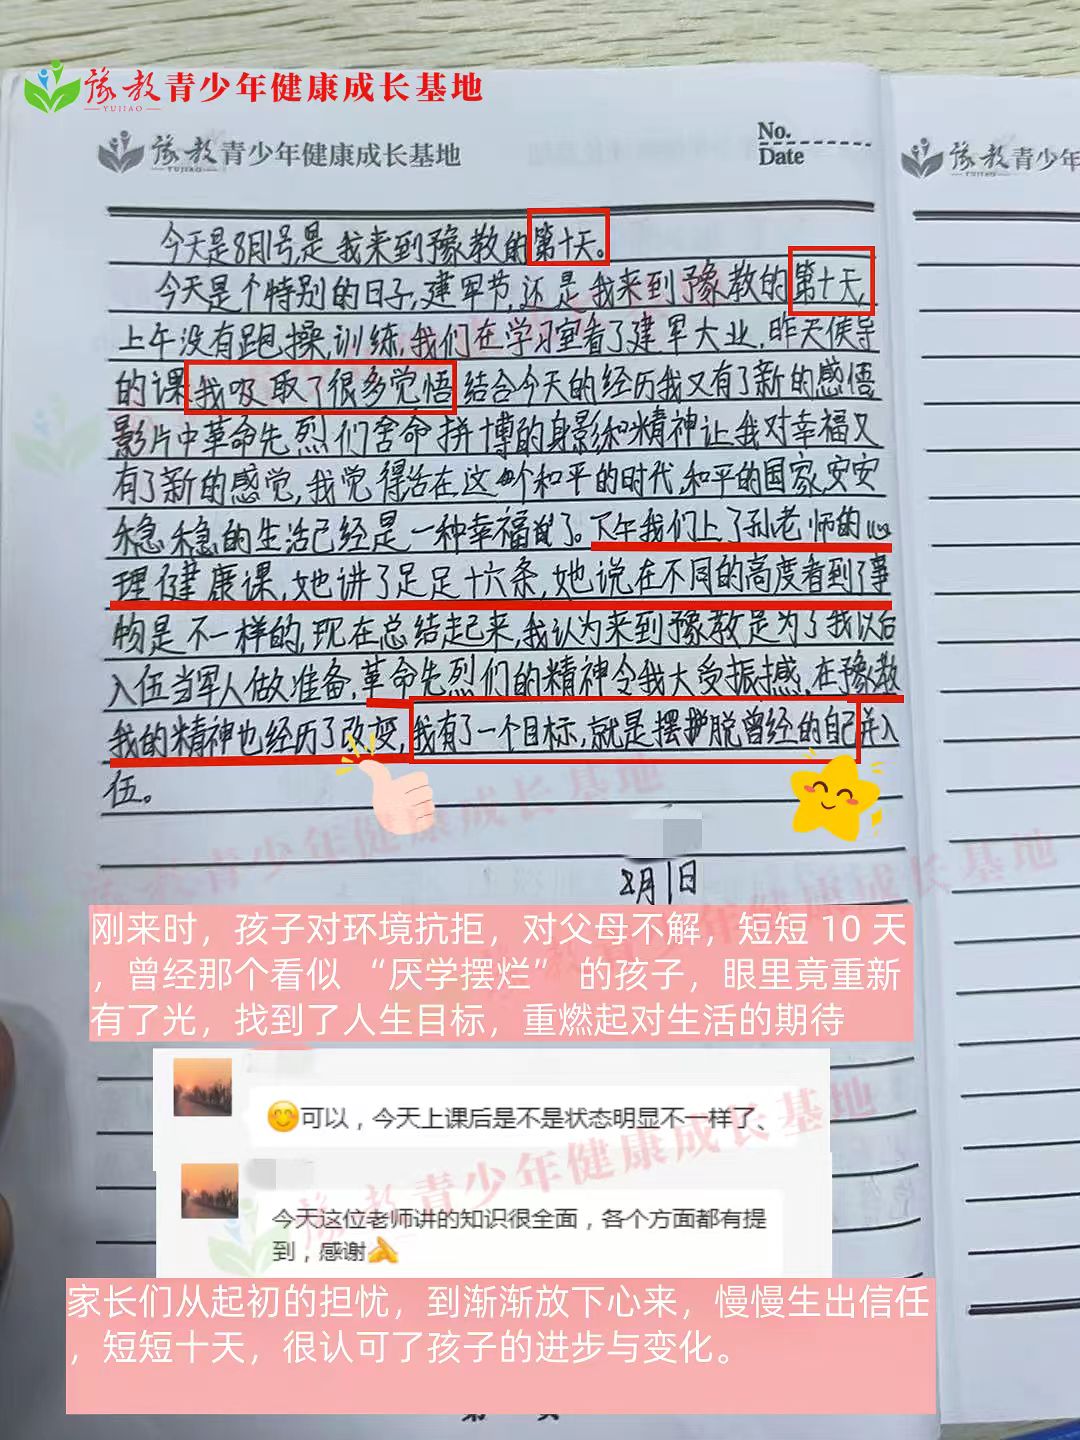 豫教青少年健康成长基地
YUJIAO
豫教青少年健康成长基地
YUJIAO
No.
Date
豫教青少年
今天是8月1号,是我来到豫教的第十天。
今天是个特别的日子,建军节,还是我来到豫教的第十天,
上午没有跑操,训练,我们在学习室看了建军大业,昨天侯导
的课我吸取了很多觉悟结合今天的经历我又有了新的感悟
影片中革命先烈们舍命拼博的身影和精神让我对幸福又
有了新的感觉,我觉得活在这个和平的时代,和平的国家,安安
稳稳的生活已经是一种幸福了。下午我们上了孙老师的心
理健康课,她讲了足足十六条,她说在不同的高度看到了事
物是不一样的,现在总结起来,我认为来到豫教是为了我以后
入伍当军人做准备,革命先烈们的精神令我大受振撼,在豫教
我的精神也经历了改变,我有了一个目标,就是摆脱曾经的自己并入
伍。
8月1日
刚来时，孩子对环境抗拒，对父母不解，短短 10 天
，曾经那个看似“厌学摆烂”的孩子，眼里竟重新
有了光，找到了人生目标，重燃起对生活的期待
可以，今天上课后是不是状态明显不一样了、
今天这位老师讲的知识很全面，各个方面都有提
到，感谢
家长们从起初的担忧，到渐渐放下心来，慢慢生出信任
，短短十天，很认可了孩子的进步与变化。
豫教青少年健康成长基地